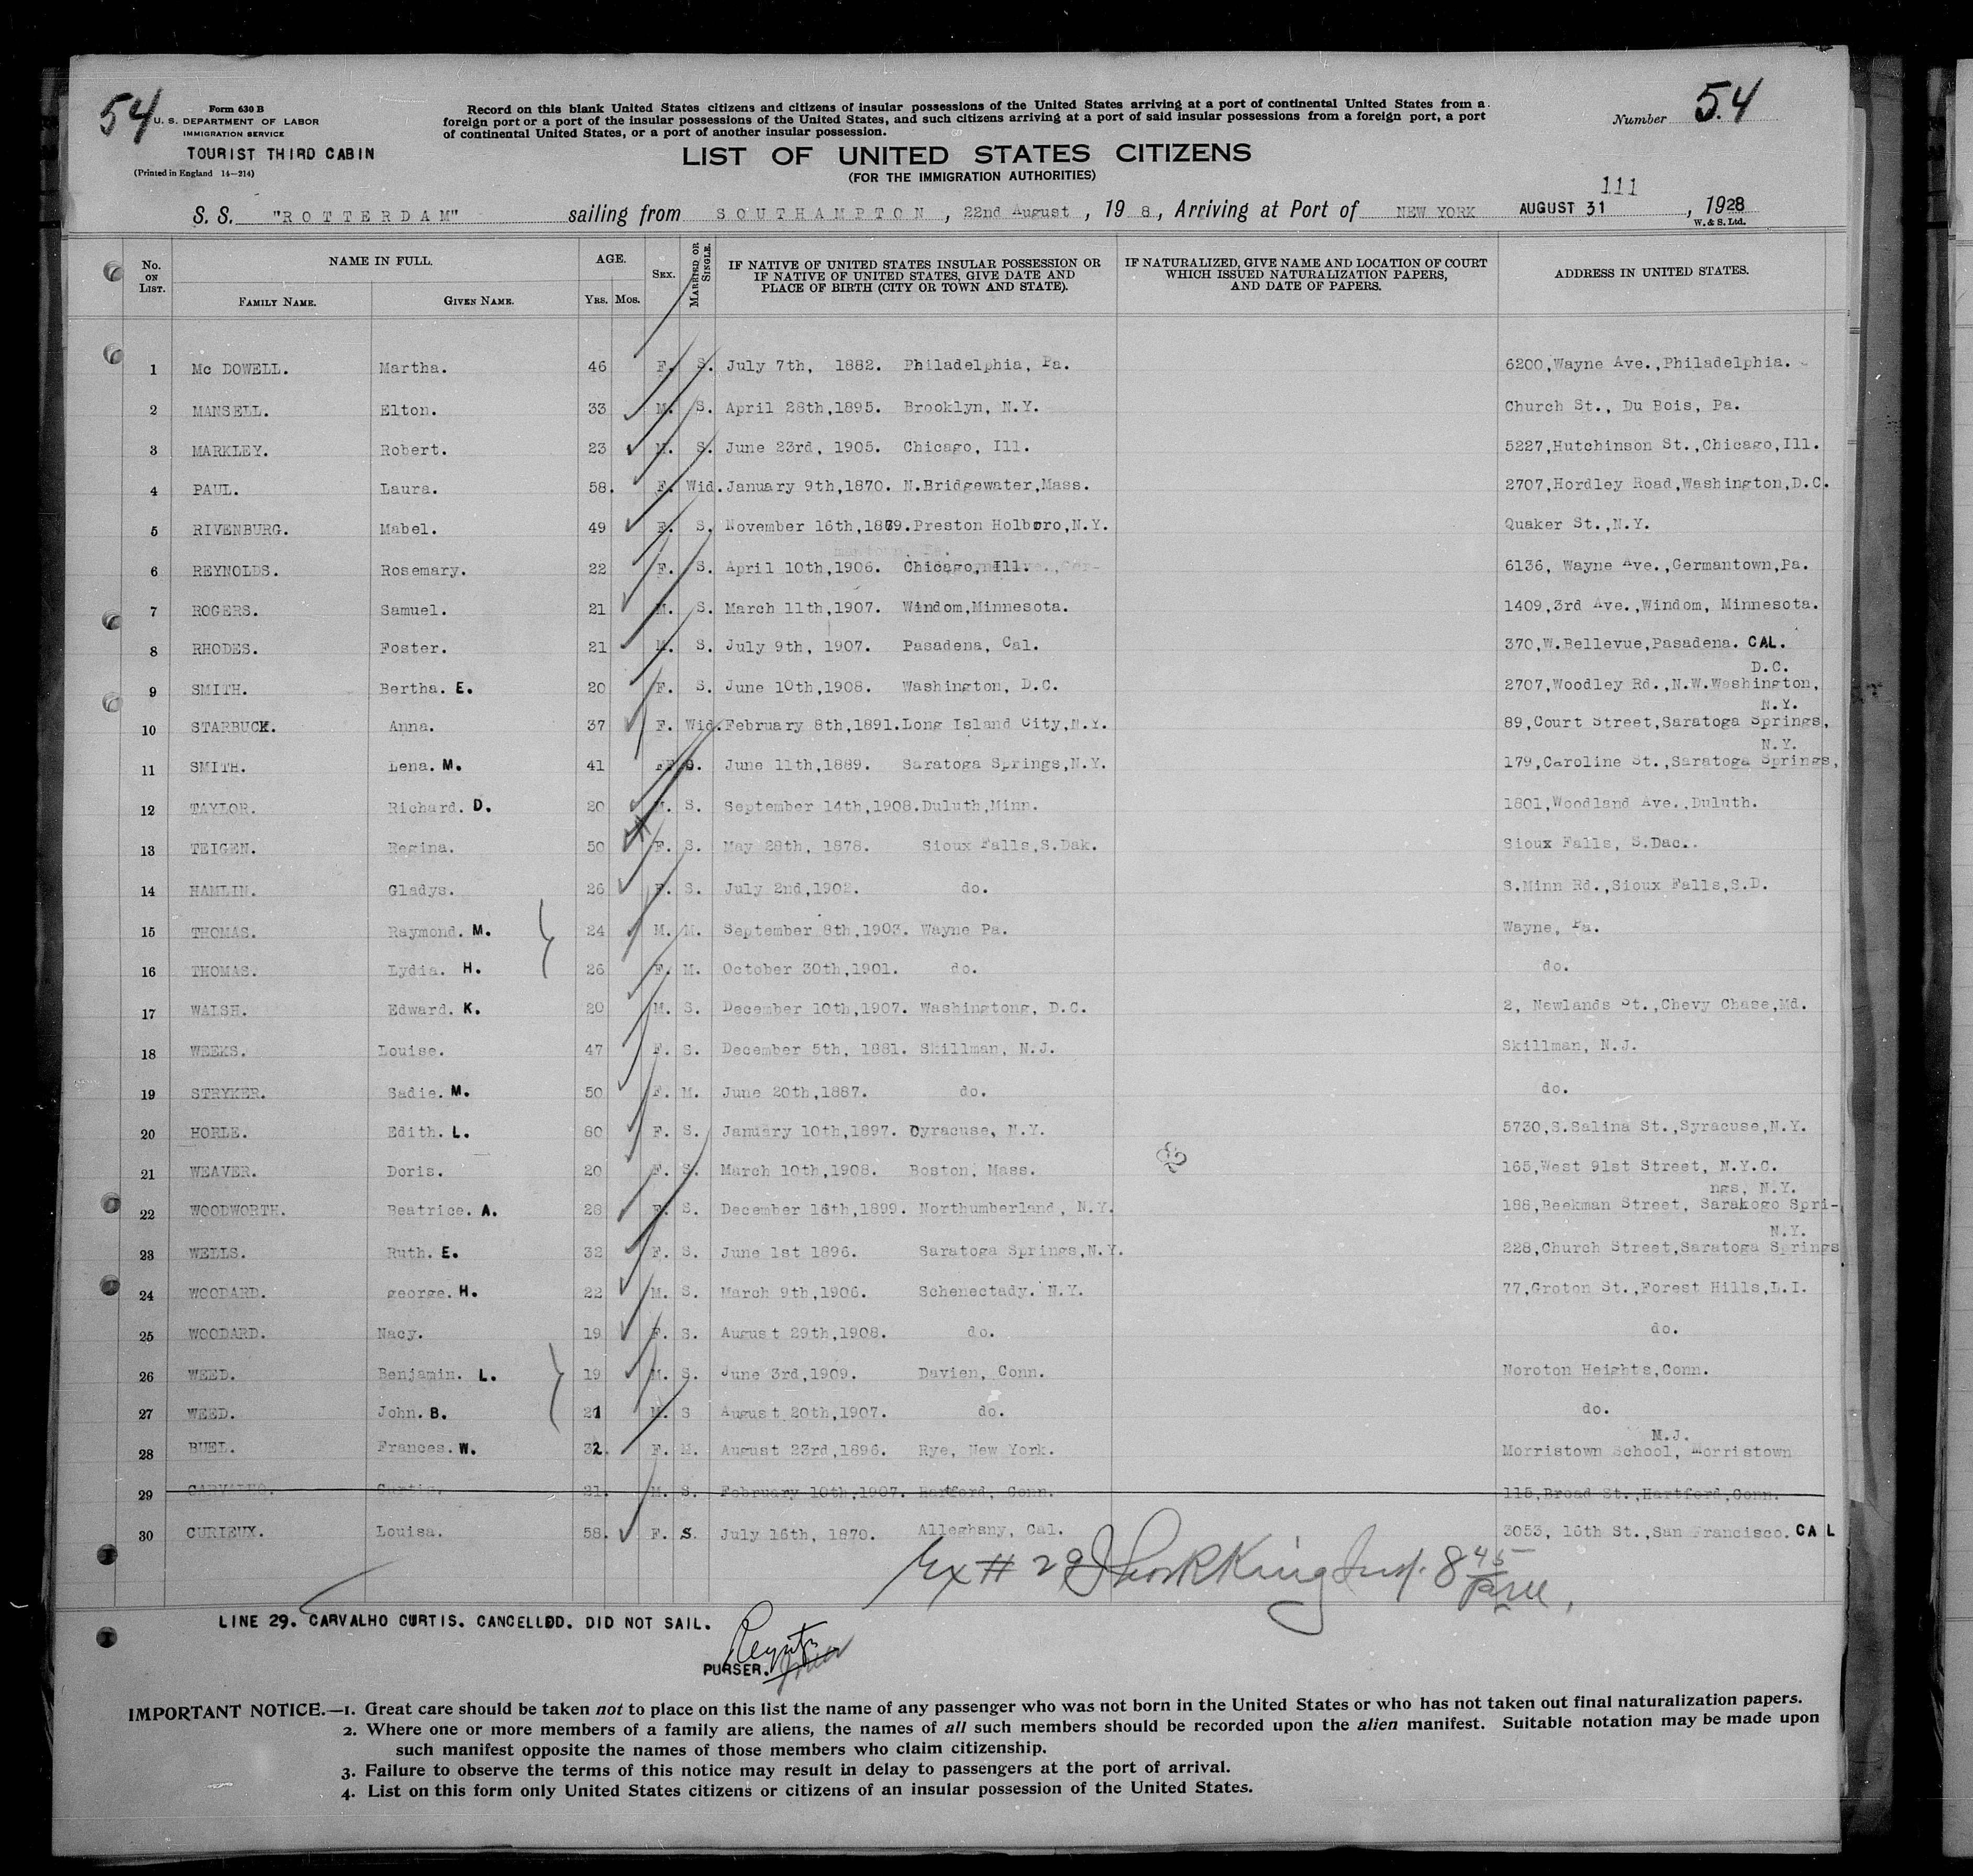 54
Form 630 B
U. S. DEPARTMENT OF LABOR
IMMIGRATION SERVICE
TOURIST THIRD CABIN
(Printed in England 14—214)
Record on this blank United States citizens and citizens of insular possessions of the United States arriving at a port of continental United States from a
foreign port or a port of the insular possessions of the United States, and such citizens arriving at a port of said insular possessions from a foreign port, a port
of continental United States, or a port of another insular possession.
Number 54
LIST OF UNITED STATES CITIZENS
(FOR THE IMMIGRATION AUTHORITIES)
111
S. S. "ROTTERDAM" sailing from SOUTHAMPTON, 22nd August, 19 8, Arriving at Port of NEW YORK AUGUST 31, 1928
W. & S. Ltd.
No. ON LIST. NAME IN FULL. FAMILY NAME. GIVEN NAME. AGE. YRS. MOS. SEX. MARRIED OR SINGLE. IF NATIVE OF UNITED STATES INSULAR POSSESSION OR IF NATIVE OF UNITED STATES, GIVE DATE AND PLACE OF BIRTH (CITY OR TOWN AND STATE). IF NATURALIZED, GIVE NAME AND LOCATION OF COURT WHICH ISSUED NATURALIZATION PAPERS, AND DATE OF PAPERS. ADDRESS IN UNITED STATES.
1 Mc DOWELL. Martha. 46 F. S. July 7th, 1882. Philadelphia, Pa. 6200,Wayne Ave.,Philadelphia.
2 MANSELL. Elton. 33 M. S. April 28th,1895. Brooklyn, N.Y. Church St., Du Bois, Pa.
3 MARKLEY. Robert. 23 M. S. June 23rd, 1905. Chicago, Ill. 5227,Hutchinson St.,Chicago,Ill.
4 PAUL. Laura. 58. F. Wid. January 9th,1870. N.Bridgewater,Mass. 2707,Hordley Road,Washington,D.C.
5 RIVENBURG. Mabel. 49 F. S. November 16th,1879. Preston Holboro,N.Y. Quaker St.,N.Y.
6 REYNOLDS. Rosemary. 22 F. S. April 10th,1906. Chicago, Ill. 6136, Wayne Ave.,Germantown,Pa.
7 ROGERS. Samuel. 21 M. S. March 11th,1907. Windom,Minnesota. 1409,3rd Ave.,Windom, Minnesota.
8 RHODES. Foster. 21 M. S. July 9th, 1907. Pasadena, Cal. 370,W.Bellevue,Pasadena. CAL.
9 SMITH. Bertha. E. 20 F. S. June 10th,1908. Washington, D.C. 2707,Woodley Rd.,N.W.Washington, D.C.
10 STARBUCK. Anna. 37 F. Wid. February 8th,1891. Long Island City,N.Y. 89,Court Street,Saratoga Springs, N.Y.
11 SMITH. Lena. M. 41 F. June 11th,1889. Saratoga Springs,N.Y. 179,Caroline St.,Saratoga Springs, N.Y.
12 TAYLOR. Richard. D. 20 M. S. September 14th,1908. Duluth,Minn. 1801,Woodland Ave.,Duluth.
13 TEIGEN. Regina. 50 F. S. May 28th, 1878. Sioux Falls,S.Dak. Sioux Falls, S.Dac.
14 HAMLIN. Gladys. 26 F. S. July 2nd,1902. do. S.Minn Rd.,Sioux Falls,S.D.
15 THOMAS. Raymond. M. 24 M. M. September 8th,1903. Wayne Pa. Wayne, Pa.
16 THOMAS. Lydia. H. 26 F. M. October 30th,1901. do. do.
17 WALSH. Edward. K. 20 M. S. December 10th,1907. Washingtong, D.C. 2, Newlands St.,Chevy Chase,Md.
18 WEEKS. Louise. 47 F. S. December 5th, 1881. Skillman, N.J. Skillman, N.J.
19 STRYKER. Sadie. M. 50 F. M. June 20th,1887. do. do.
20 HORLE. Edith. L. 80 F. S. January 10th,1897. Syracuse, N.Y. 5730,S.Salina St.,Syracuse,N.Y.
21 WEAVER. Doris. 20 F. S. March 10th,1908. Boston, Mass. 165,West 91st Street, N.Y.C.
22 WOODWORTH. Beatrice. A. 28 F. S. December 16th,1899. Northumberland, N.Y. 188,Beekman Street, Saratogo Spri- ngs, N.Y.
23 WELLS. Ruth. E. 32 F. S. June 1st 1896. Saratoga Springs,N.Y. 228,Church Street,Saratoga Springs N.Y.
24 WOODARD. george. H. 22 M. S. March 9th,1906. Schenectady. N.Y. 77,Groton St.,Forest Hills,L.I.
25 WOODARD. Nacy. 19 F. S. August 29th,1908. do. do.
26 WEED. Benjamin. L. 19 M. S. June 3rd,1909. Davien, Conn. Noroton Heights,Conn.
27 WEED. John. B. 21 M. S August 20th,1907. do. do.
28 BUEL. Frances. W. 32. F. M. August 23rd,1896. Rye, New York. Morristown School, Morristown N.J.
29 CARVALHO. Curtis. 21. M. S. February 10th,1907. Hartford, Conn. 115,Broad St.,Hartford,Conn.
30 CURIEUX. Louisa. 58. F. S. July 16th, 1870. Alleghany, Cal. 3053, 16th St.,San Francisco. CAL
Ex # 29 King Insp. 8 45
LINE 29. CARVALHO CURTIS. CANCELLED. DID NOT SAIL.
PURSER.
IMPORTANT NOTICE.—1. Great care should be taken not to place on this list the name of any passenger who was not born in the United States or who has not taken out final naturalization papers.
2. Where one or more members of a family are aliens, the names of all such members should be recorded upon the alien manifest. Suitable notation may be made upon
such manifest opposite the names of those members who claim citizenship.
3. Failure to observe the terms of this notice may result in delay to passengers at the port of arrival.
4. List on this form only United States citizens or citizens of an insular possession of the United States.